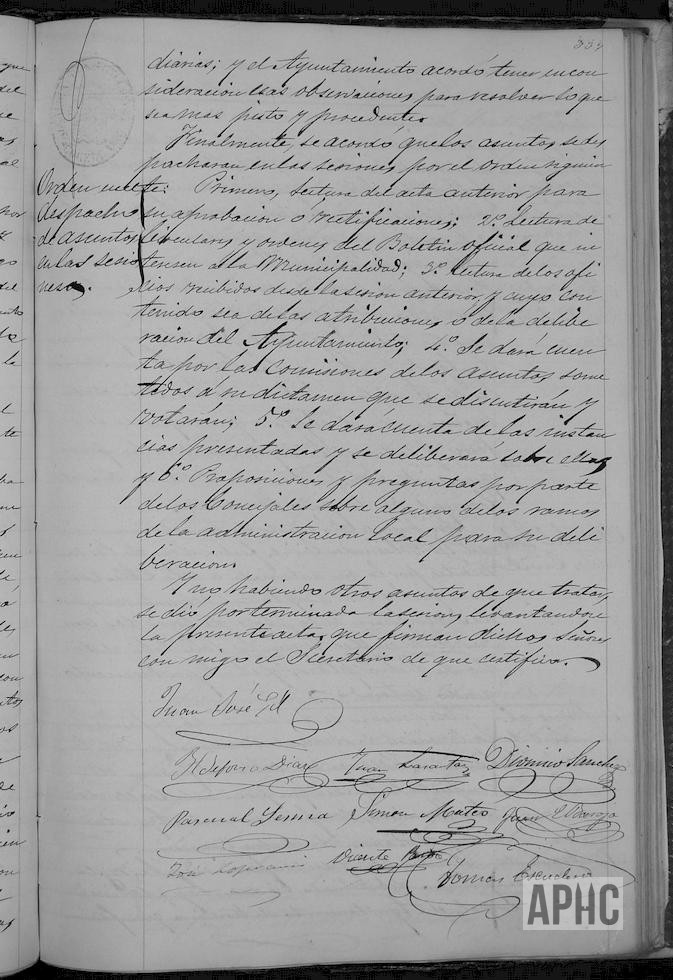 diarias; y el Ayuntamiento acordó tener en con
sideracion esas observaciones para resolver lo que
sea mas justo y procedente.
Finalmente, se acordó que los asuntos se des
pacharan en las sesiones por el orden siguien
te: Primero, Lectura del acta anterior para
su aprobacion o rectificaciones; 2º Lectura de
circulares y ordenes del Boletin oficial que in
teresen a la Municipalidad; 3º Lectura de los ofi
cios recibidos desde la sesion anterior, y cuyo con
tenido sea de las atribuciones o de la delibe
racion del Ayuntamiento; 4º Se dará cuen
ta por las comisiones de los asuntos some
tidos a su dictamen que se discutirán y
votarán; 5º Se dara cuenta de las instan
cias presentadas y se deliberara sobre ellas
y 6º Proposiciones y preguntas por parte
de los Concejales sobre alguno de los ramos
de la administracion local para su deli
beracion.
Y no habiendo otros asuntos de que tratar,
se dio por terminada la sesion, levantandose
la presente acta, que firman dichos Señores
con migo el Secretario de que certifico.
Orden en el
despacho
de asuntos
en las sesio
nes.
Juan José Gil
Ildefonso Diaz
Juan
Dionisio Sanchez
Pascual
Simon Mateo
Juan
José
Vicente
Tomas Escudero
APHC